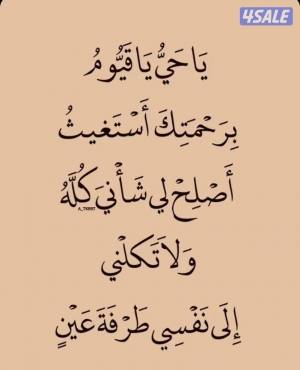 4SALE
يَا حَيُّ يَا قَيُّومُ
بِرَحْمَتِكَ أَسْتَغيثُ
أَصْلِحْ لي شَأْنيَ كُلَّهُ
وَلاَ تَكلْني
إِلَى نَفْسِي طَرْفَةَ عَيْنٍ